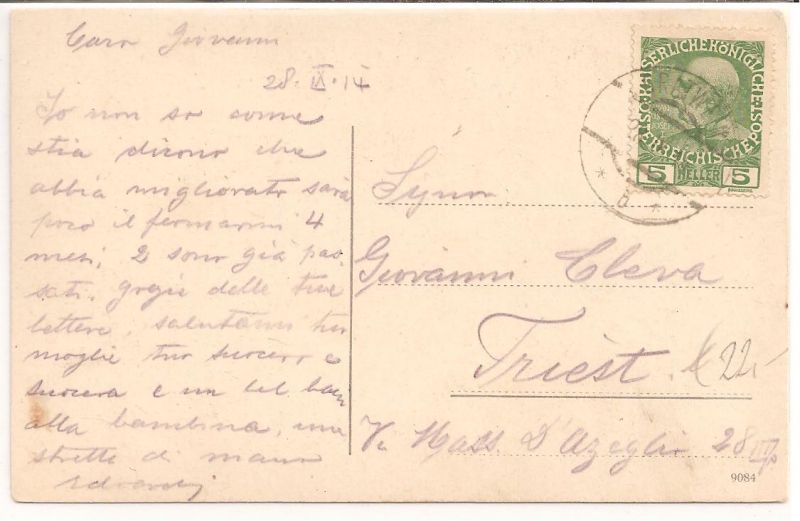 Caro Giovanni
28. IX. 14
Io non so come
stia dicono che
abbia migliorato sarà
poco il fermarmi 4
mesi, 2 sono già pas-
sati. grazie delle tue
lettere, salutami tua
moglie tuo suocero e
suocera e un bel baci
alla bambina, una
stretta di mano
Edoardo
KAISERLICHE KÖNIGLICHE
ÖSTERREICHISCHE POST
5 HELLER 5
Signor
Giovanni Cleva
Triest.
Via Mass D'Azeglio 28 III p
22
9084